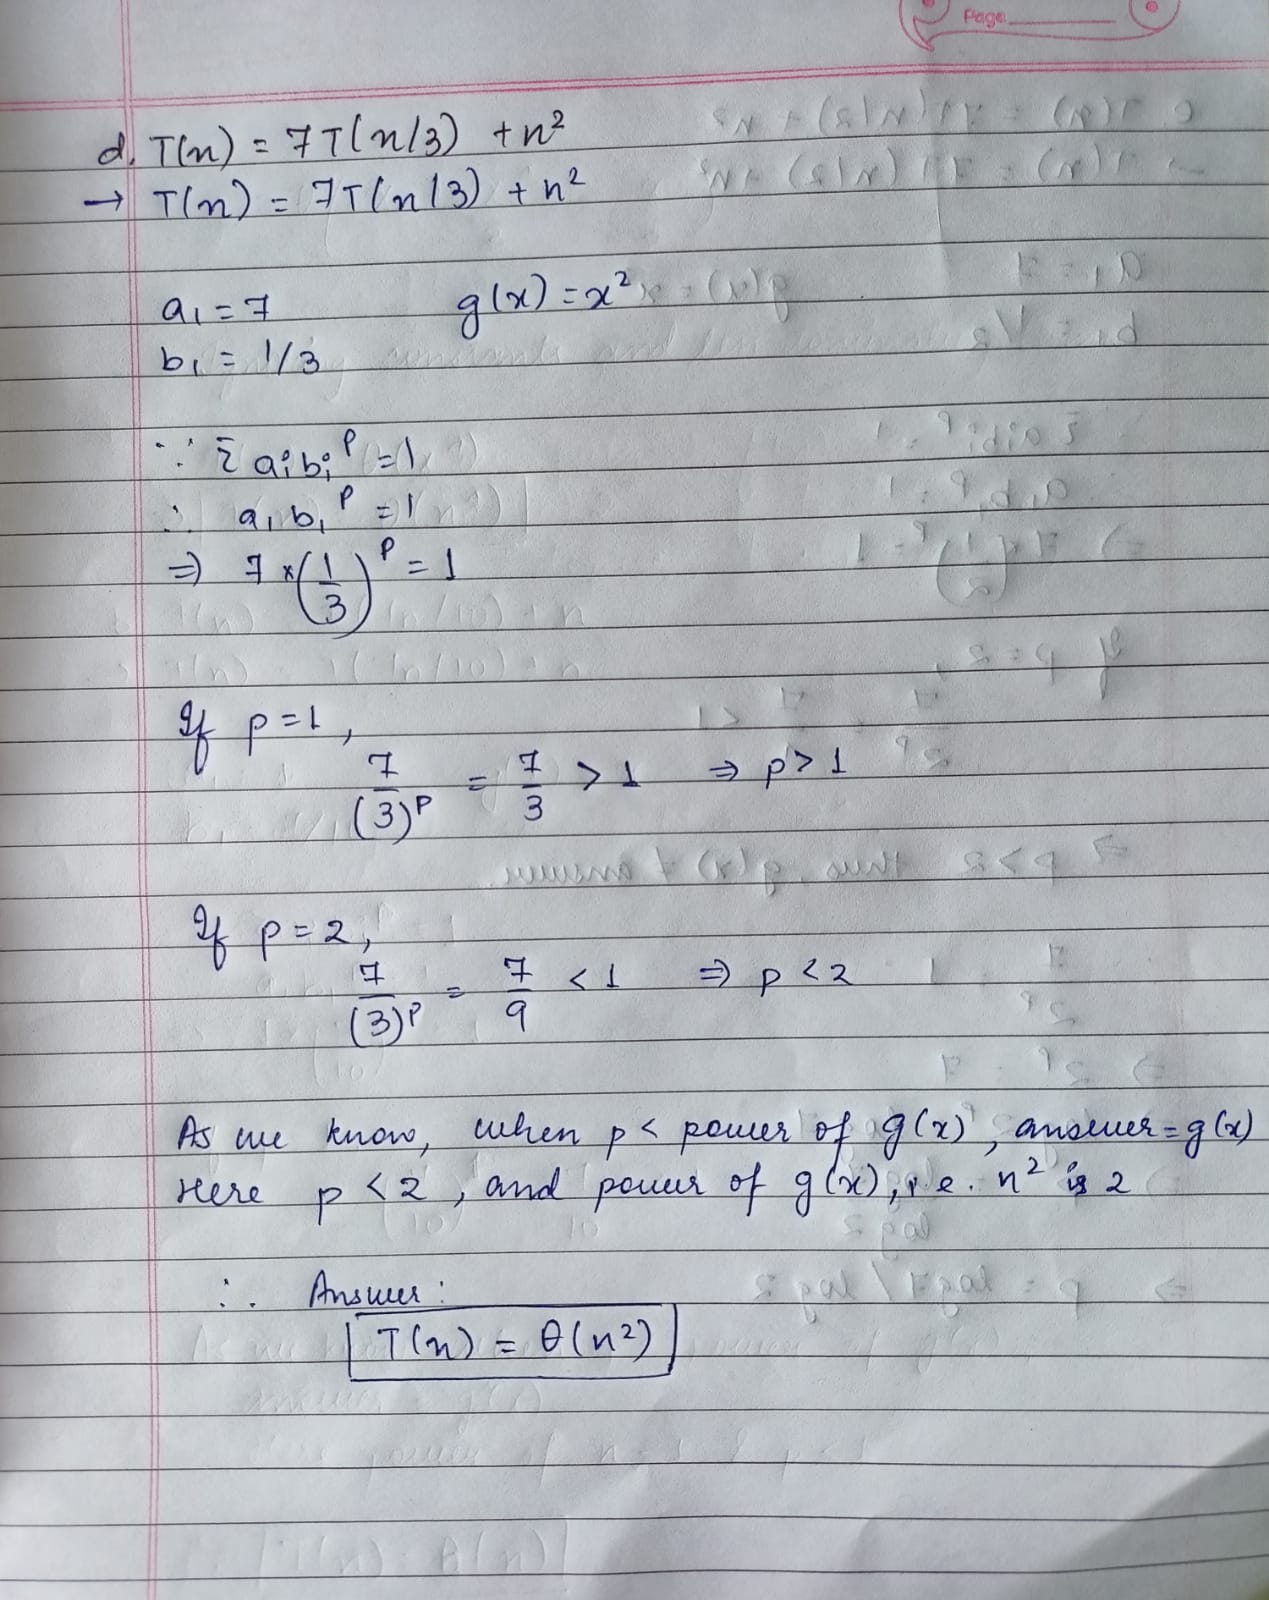 Page
d. T(n) = 7T(n/3) + n²
→ T(n) = 7T(n/3) + n²
a₁ = 7 g(x) = x²
b₁ = 1/3
∵ Σ aᵢbᵢᵖ = 1
∴ a₁b₁ᵖ = 1
⇒ 7 × (1/3)ᵖ = 1
If p = 1,
7/(3)ᵖ = 7/3 > 1 ⇒ p > 1
If p = 2,
7/(3)ᵖ = 7/9 < 1 ⇒ p < 2
As we know, when p < power of g(x), answer = g(x)
Here p < 2, and power of g(x), i.e. n² is 2
∴ Answer:
T(n) = θ(n²)